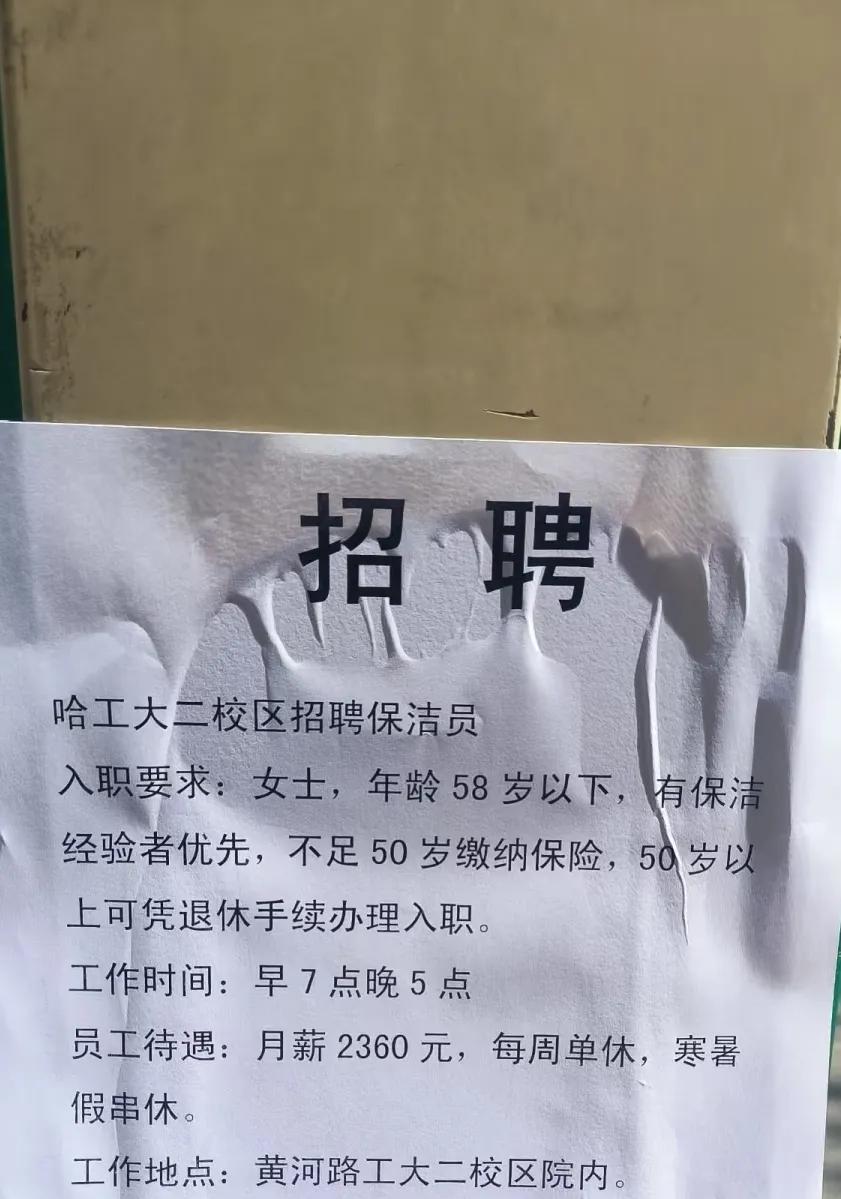 招聘
哈工大二校区招聘保洁员
入职要求：女士，年龄 58 岁以下，有保洁
经验者优先，不足 50 岁缴纳保险，50 岁以
上可凭退休手续办理入职。
工作时间：早 7 点晚 5 点
员工待遇：月薪 2360 元，每周单休，寒暑
假串休。
工作地点：黄河路工大二校区院内。